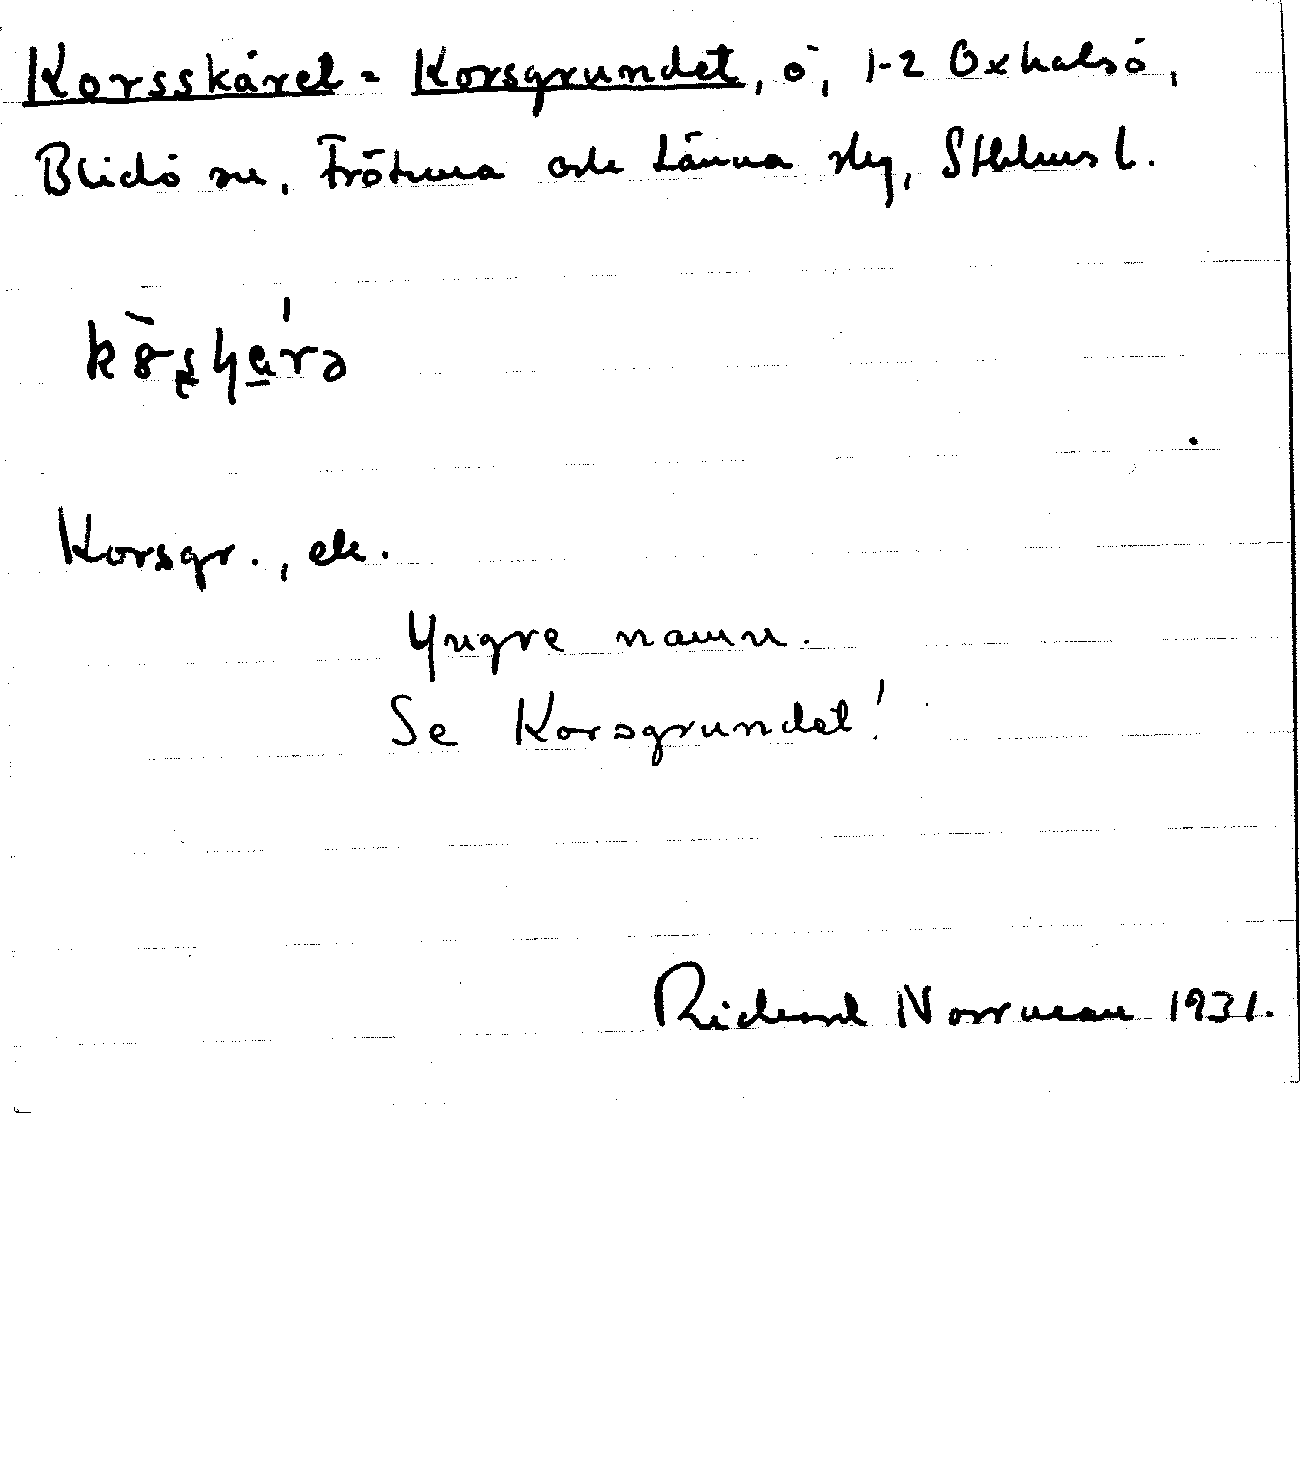 Korsskäret = Korsgrundet, ö, 1-2 Oxhalsö,
Blidö sn, Frötuna och Länna skg, Sthlms l.
Korsgr., ek.
Yngre namn.
Se Korsgrundet!
Richard Norrman 1931.